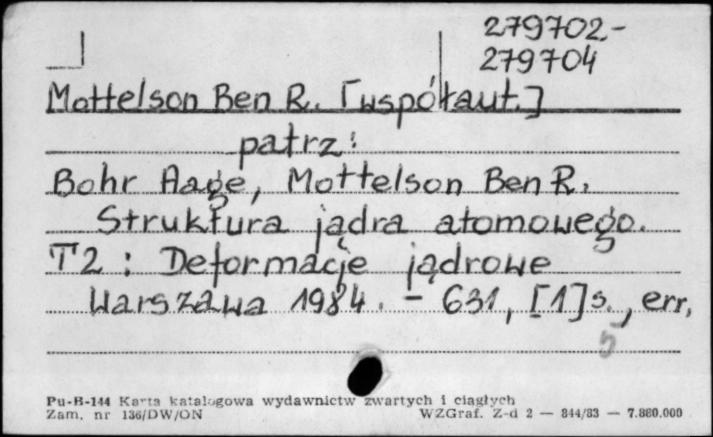 279702-
279704
Mottelson Ben R. [współaut.]
patrz:
Bohr Aage, Mottelson Ben R.
Struktura jądra atomowego.
T2 : Deformacje jądrowe
Warszawa 1984. - 631, [1] s., err.
5
Pu-B-144 Karta katalogowa wydawnictw zwartych i ciągłych
Zam. nr 136/DW/ON WZGraf. Z-d 2 — 844/83 — 7.880.000